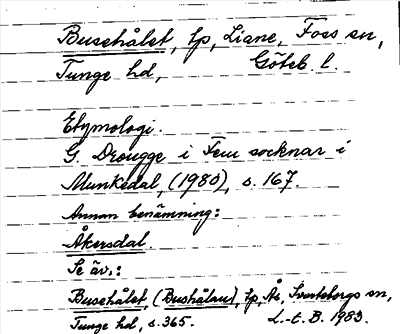 Busehålet, lp, Liane, Foss sn,
Tunge hd, Göteb. l.
Etymologi.
G. Drougge i Fem socknar i
Munkedal, (1980), s. 167.
Annan benämning:
Åkersdal.
Se äv.:
Busehålet, (Bushålan), lp, Ås, Svarteborgs sn,
Tunge hd, s. 365. L.-E. B. 1983.